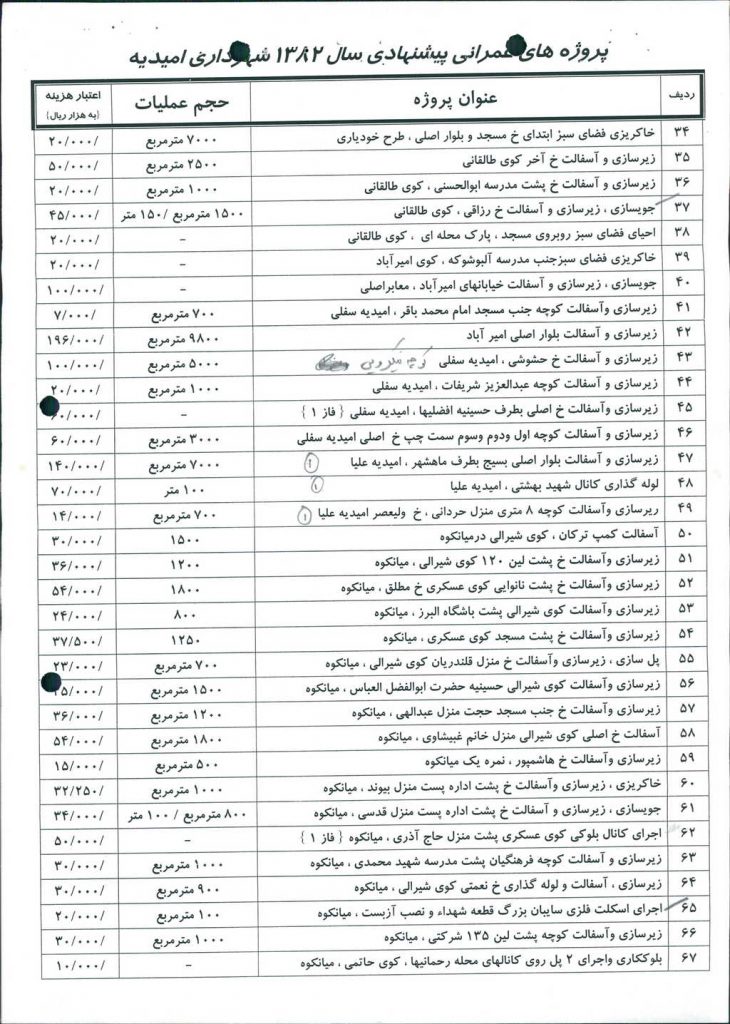 پروژه های عمرانی پیشنهادی سال ۱۳۸۲ شهرداری امیدیه
ردیف عنوان پروژه حجم عملیات اعتبار هزینه (به هزار ریال)
۳۴ خاکریزی فضای سبز ابتدای خ مسجد و بلوار اصلی ، طرح خودیاری ۷۰۰۰ مترمربع ۲۰/۰۰۰/
۳۵ زیرسازی و آسفالت خ آخر کوی طالقانی ۲۵۰۰ مترمربع ۵۰/۰۰۰/
۳۶ زیرسازی و آسفالت خ پشت مدرسه ابوالحسنی ، کوی طالقانی ۱۰۰۰ مترمربع ۲۰/۰۰۰/
۳۷ جویسازی ، زیرسازی و آسفالت خ رزاقی ، کوی طالقانی ۱۵۰۰ مترمربع /۱۵۰ متر ۴۵/۰۰۰/
۳۸ احیای فضای سبز روبروی مسجد ، پارک محله ای ، کوی طالقانی - ۲۰/۰۰۰/
۳۹ خاکریزی فضای سبزجنب مدرسه آلبوشوکه ، کوی امیرآباد - ۲۰/۰۰۰/
۴۰ جویسازی ، زیرسازی و آسفالت خیابانهای امیرآباد ، معابراصلی - ۱۰۰/۰۰۰/
۴۱ زیرسازی وآسفالت کوچه جنب مسجد امام محمد باقر ، امیدیه سفلی ۷۰۰ مترمربع ۷/۰۰۰/
۴۲ زیرسازی و آسفالت بلوار اصلی امیر آباد ۹۸۰۰ مترمربع ۱۹۶/۰۰۰/
۴۳ زیرسازی و آسفالت خ حشوشی ، امیدیه سفلی کوچه ۵۰۰۰ مترمربع ۱۰۰/۰۰۰/
۴۴ زیرسازی و آسفالت کوچه عبدالعزیز شریفات ، امیدیه سفلی ۱۰۰۰ مترمربع ۲۰/۰۰۰/
۴۵ زیرسازی وآسفالت خ اصلی بطرف حسینیه افضلیها ، امیدیه سفلی { فاز ۱ } - ۶۰/۰۰۰/
۴۶ زیرسازی و آسفالت کوچه اول ودوم وسوم سمت چپ خ اصلی امیدیه سفلی ۳۰۰۰ مترمربع ۶۰/۰۰۰/
۴۷ زیرسازی و آسفالت بلوار اصلی بسیج بطرف ماهشهر ، امیدیه علیا ۱ ۷۰۰۰ مترمربع ۱۴۰/۰۰۰/
۴۸ لوله گذاری کانال شهید بهشتی ، امیدیه علیا ۱ ۱۰۰ متر ۷۰/۰۰۰/
۴۹ ریرسازی وآسفالت کوچه ۸ متری منزل حردانی ، خ ولیعصر امیدیه علیا ۱ ۷۰۰ مترمربع ۱۴/۰۰۰/
۵۰ آسفالت کمپ ترکان ، کوی شیرالی درمیانکوه ۱۵۰۰ ۳۰/۰۰۰/
۵۱ زیرسازی وآسفالت خ پشت لین ۱۲۰ کوی شیرالی ، میانکوه ۱۲۰۰ ۳۶/۰۰۰/
۵۲ زیرسازی وآسفالت خ پشت نانوایی کوی عسکری خ مطلق ، میانکوه ۱۸۰۰ ۵۴/۰۰۰/
۵۳ زیرسازی وآسفالت کوی شیرالی پشت باشگاه البرز ، میانکوه ۸۰۰ ۲۴/۰۰۰/
۵۴ زیرسازی وآسفالت خ پشت مسجد کوی عسکری ، میانکوه ۱۲۵۰ ۳۷/۵۰۰/
۵۵ پل سازی ، زیرسازی وآسفالت خ منزل قلندریان کوی شیرالی ، میانکوه ۷۰۰ مترمربع ۲۳/۰۰۰/
۵۶ زیرسازی وآسفالت کوی شیرالی حسینیه حضرت ابوالفضل العباس ، میانکوه ۱۵۰۰ مترمربع ۵/۰۰۰/
۵۷ زیرسازی وآسفالت خ جنب مسجد حجت منزل عبدالهی ، میانکوه ۱۲۰۰ مترمربع ۳۶/۰۰۰/
۵۸ آسفالت خ اصلی کوی شیرالی منزل خانم غبیشاوی ، میانکوه ۱۸۰۰ مترمربع ۵۴/۰۰۰/
۵۹ زیرسازی وآسفالت خ هاشمپور ، نمره یک میانکوه ۵۰۰ مترمربع ۱۵/۰۰۰/
۶۰ خاکریزی ، زیرسازی وآسفالت خ پشت اداره پست منزل بیوند ، میانکوه ۱۰۰۰ مترمربع ۳۲/۲۵۰/
۶۱ جویسازی ، زیرسازی وآسفالت خ پشت اداره پست منزل قدسی ، میانکوه ۸۰۰ مترمربع / ۱۰۰ متر ۳۴/۰۰۰/
۶۲ اجرای کانال بلوکی کوی عسکری پشت منزل حاج آذری ، میانکوه { فاز ۱ } - ۵۰/۰۰۰/
۶۳ زیرسازی و آسفالت کوچه فرهنگیان پشت مدرسه شهید محمدی ، میانکوه ۱۰۰۰ مترمربع ۳۰/۰۰۰/
۶۴ زیرسازی ، آسفالت و لوله گذاری خ نعمتی کوی شیرالی ، میانکوه ۹۰۰ مترمربع ۳۰/۰۰۰/
۶۵ اجرای اسکلت فلزی سایبان بزرگ قطعه شهداء و نصب آزبست ، میانکوه ۱۰۰ مترمربع ۲۰/۰۰۰/
۶۶ زیرسازی وآسفالت کوچه پشت لین ۱۳۵ شرکتی ، میانکوه ۱۰۰۰ مترمربع ۳۰/۰۰۰/
۶۷ بلوککاری واجرای ۲ پل روی کانالهای محله رحمانیها ، کوی حاتمی ، میانکوه - ۱۰/۰۰۰/